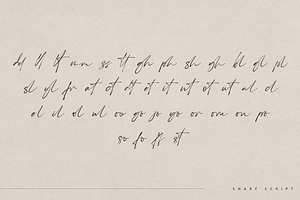 ll tt um ss tt gh ph sh gh bl gl pl
sl yl fr at ct dt et it ut ot ut al cl
el il ol ul oo go jo yo or om on po
so fo fr st
SHARP SCRIPT